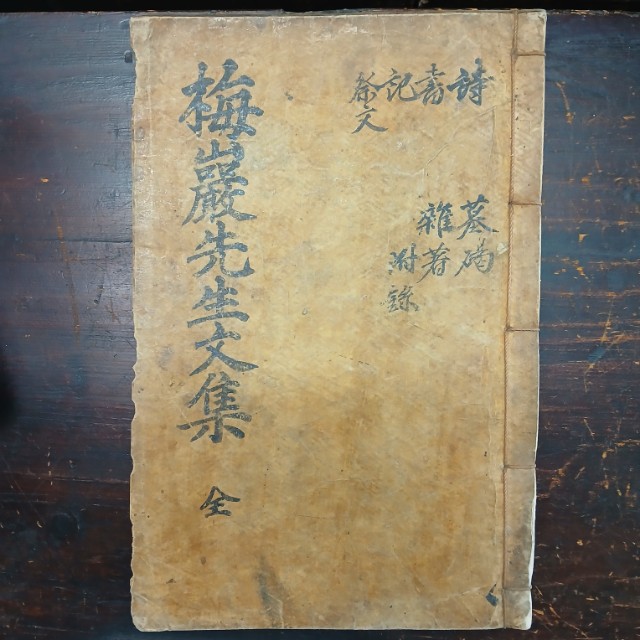 詩 墓碣
書 雜著
記 附錄
祭文
梅巖先生文集 全